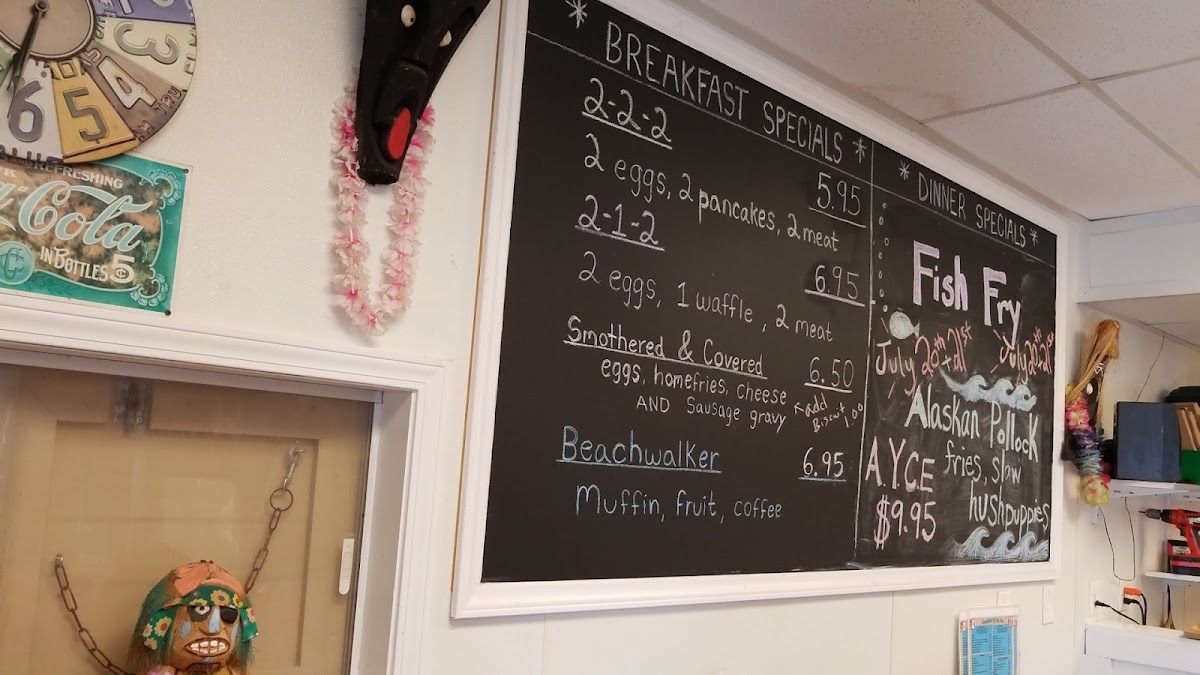 3
4
5
6
REFRESHING
Cola
IN BOTTLES 5¢
* BREAKFAST SPECIALS *
2-2-2 5.95
2 eggs, 2 pancakes, 2 meat
2-1-2 6.95
2 eggs, 1 waffle, 2 meat
Smothered & Covered 6.50
eggs, homefries, cheese
AND Sausage gravy
add
Biscuit 1.00
Beachwalker 6.95
Muffin, fruit, coffee
* DINNER SPECIALS *
Fish Fry
July 20th + 21st July 20th + 21st
Alaskan Pollock
fries, slaw
hushpuppies
A.Y.C.E
$9.95